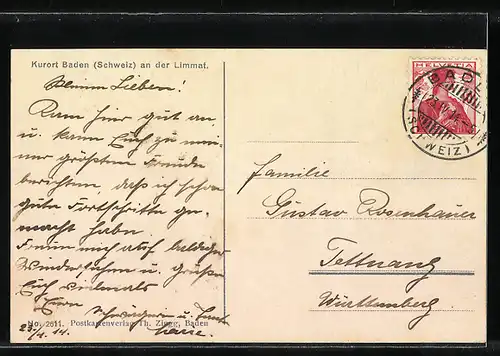 Kurort Baden (Schweiz) an der Limmat.
Meine Lieben!
Kam hier gut an
u. kann Euch zu mei-
ner größten Freude
berichten, daß ich schon
gute Fortschritte ge-
macht habe.
Freue mich auf baldiges
Wiedersehen u. grüße
Euch vielmals
Eure
Schwägerin u. Tante
23./4. 14.
No. 2511. Postkartenverlag Th. Zingg, Baden
HELVETIA
BADEN
(SCHWEIZ)
Familie
Gustav Rosenhauer
Tettnang
Württemberg.